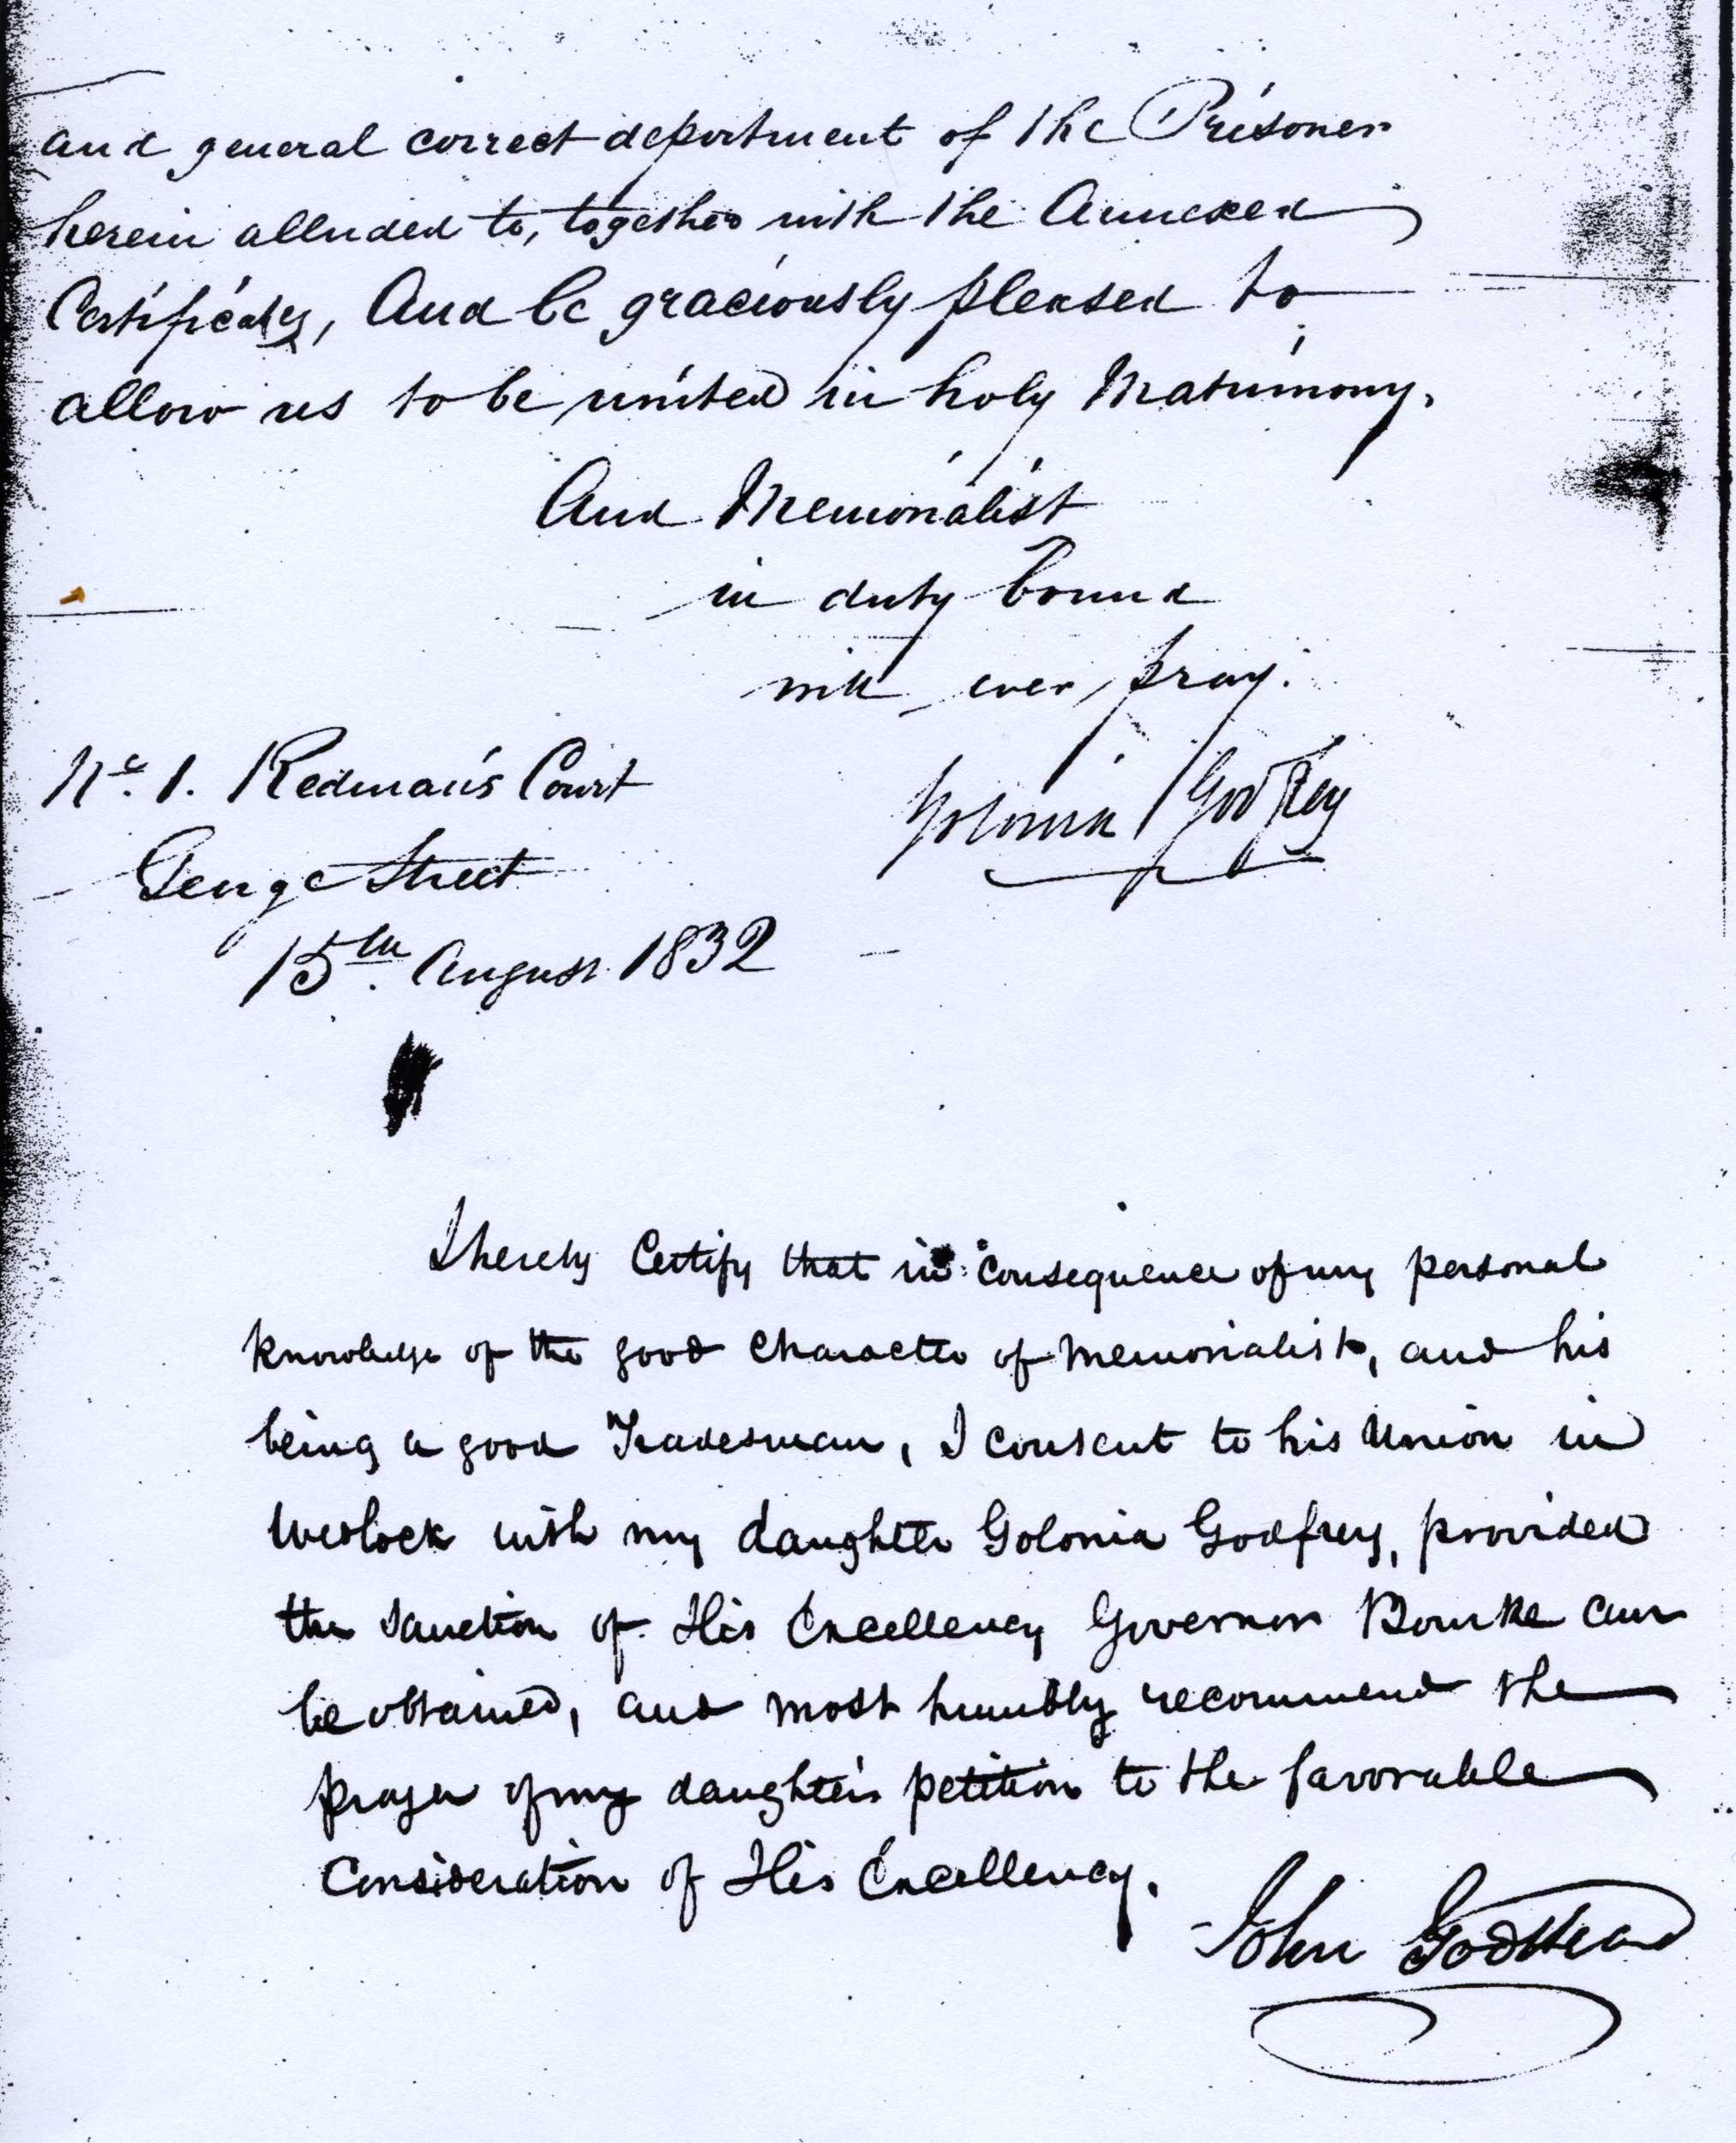 and general correct deportment of the Prisoner
herein alluded to, together with the Annexed
Certificates, And be graciously pleased to
allow us to be united in holy Matrimony.
And Memorialist
in duty bound
will ever pray.
No. 1. Redman's Court
Golonia Godfrey
George Street
15th August 1832
I hereby Certify that in consequence of my personal
knowledge of the good Character of Memorialist, and his
being a good Tradesman, I consent to his Union in
Wedlock with my daughter Golonia Godfrey, provided
the Sanction of His Excellency Governor Bourke can
be obtained, and most humbly recommend the
prayer of my daughter's petition to the favorable
Consideration of His Excellency.
John